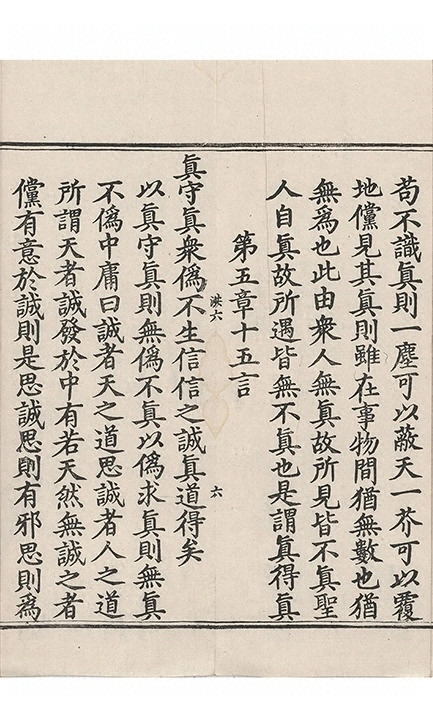 苟不識眞則一塵可以蔽天一芥可以覆
地儻見其眞則雖在事物間猶無數也猶
無爲也此由衆人無眞故所見皆不眞聖
人自眞故所遇皆無不眞也是謂眞得眞
第五章十五言
洪六
六
眞守眞衆僞不生信信之誠眞道得矣
以眞守眞則無僞不眞以僞求眞則無眞
不僞中庸曰誠者天之道思誠者人之道
所謂天者誠發於中有若天然無誠之者
儻有意於誠則是思誠思則有邪思則爲